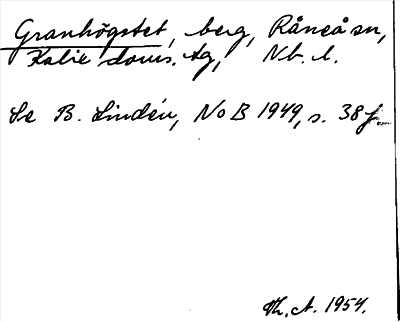 Granhögstet, berg, Råneå sn,
Kalix doms. tg, Nb. l.
Se B. Lindén, NoB 1949, s. 38 f.
Th. A. 1954.